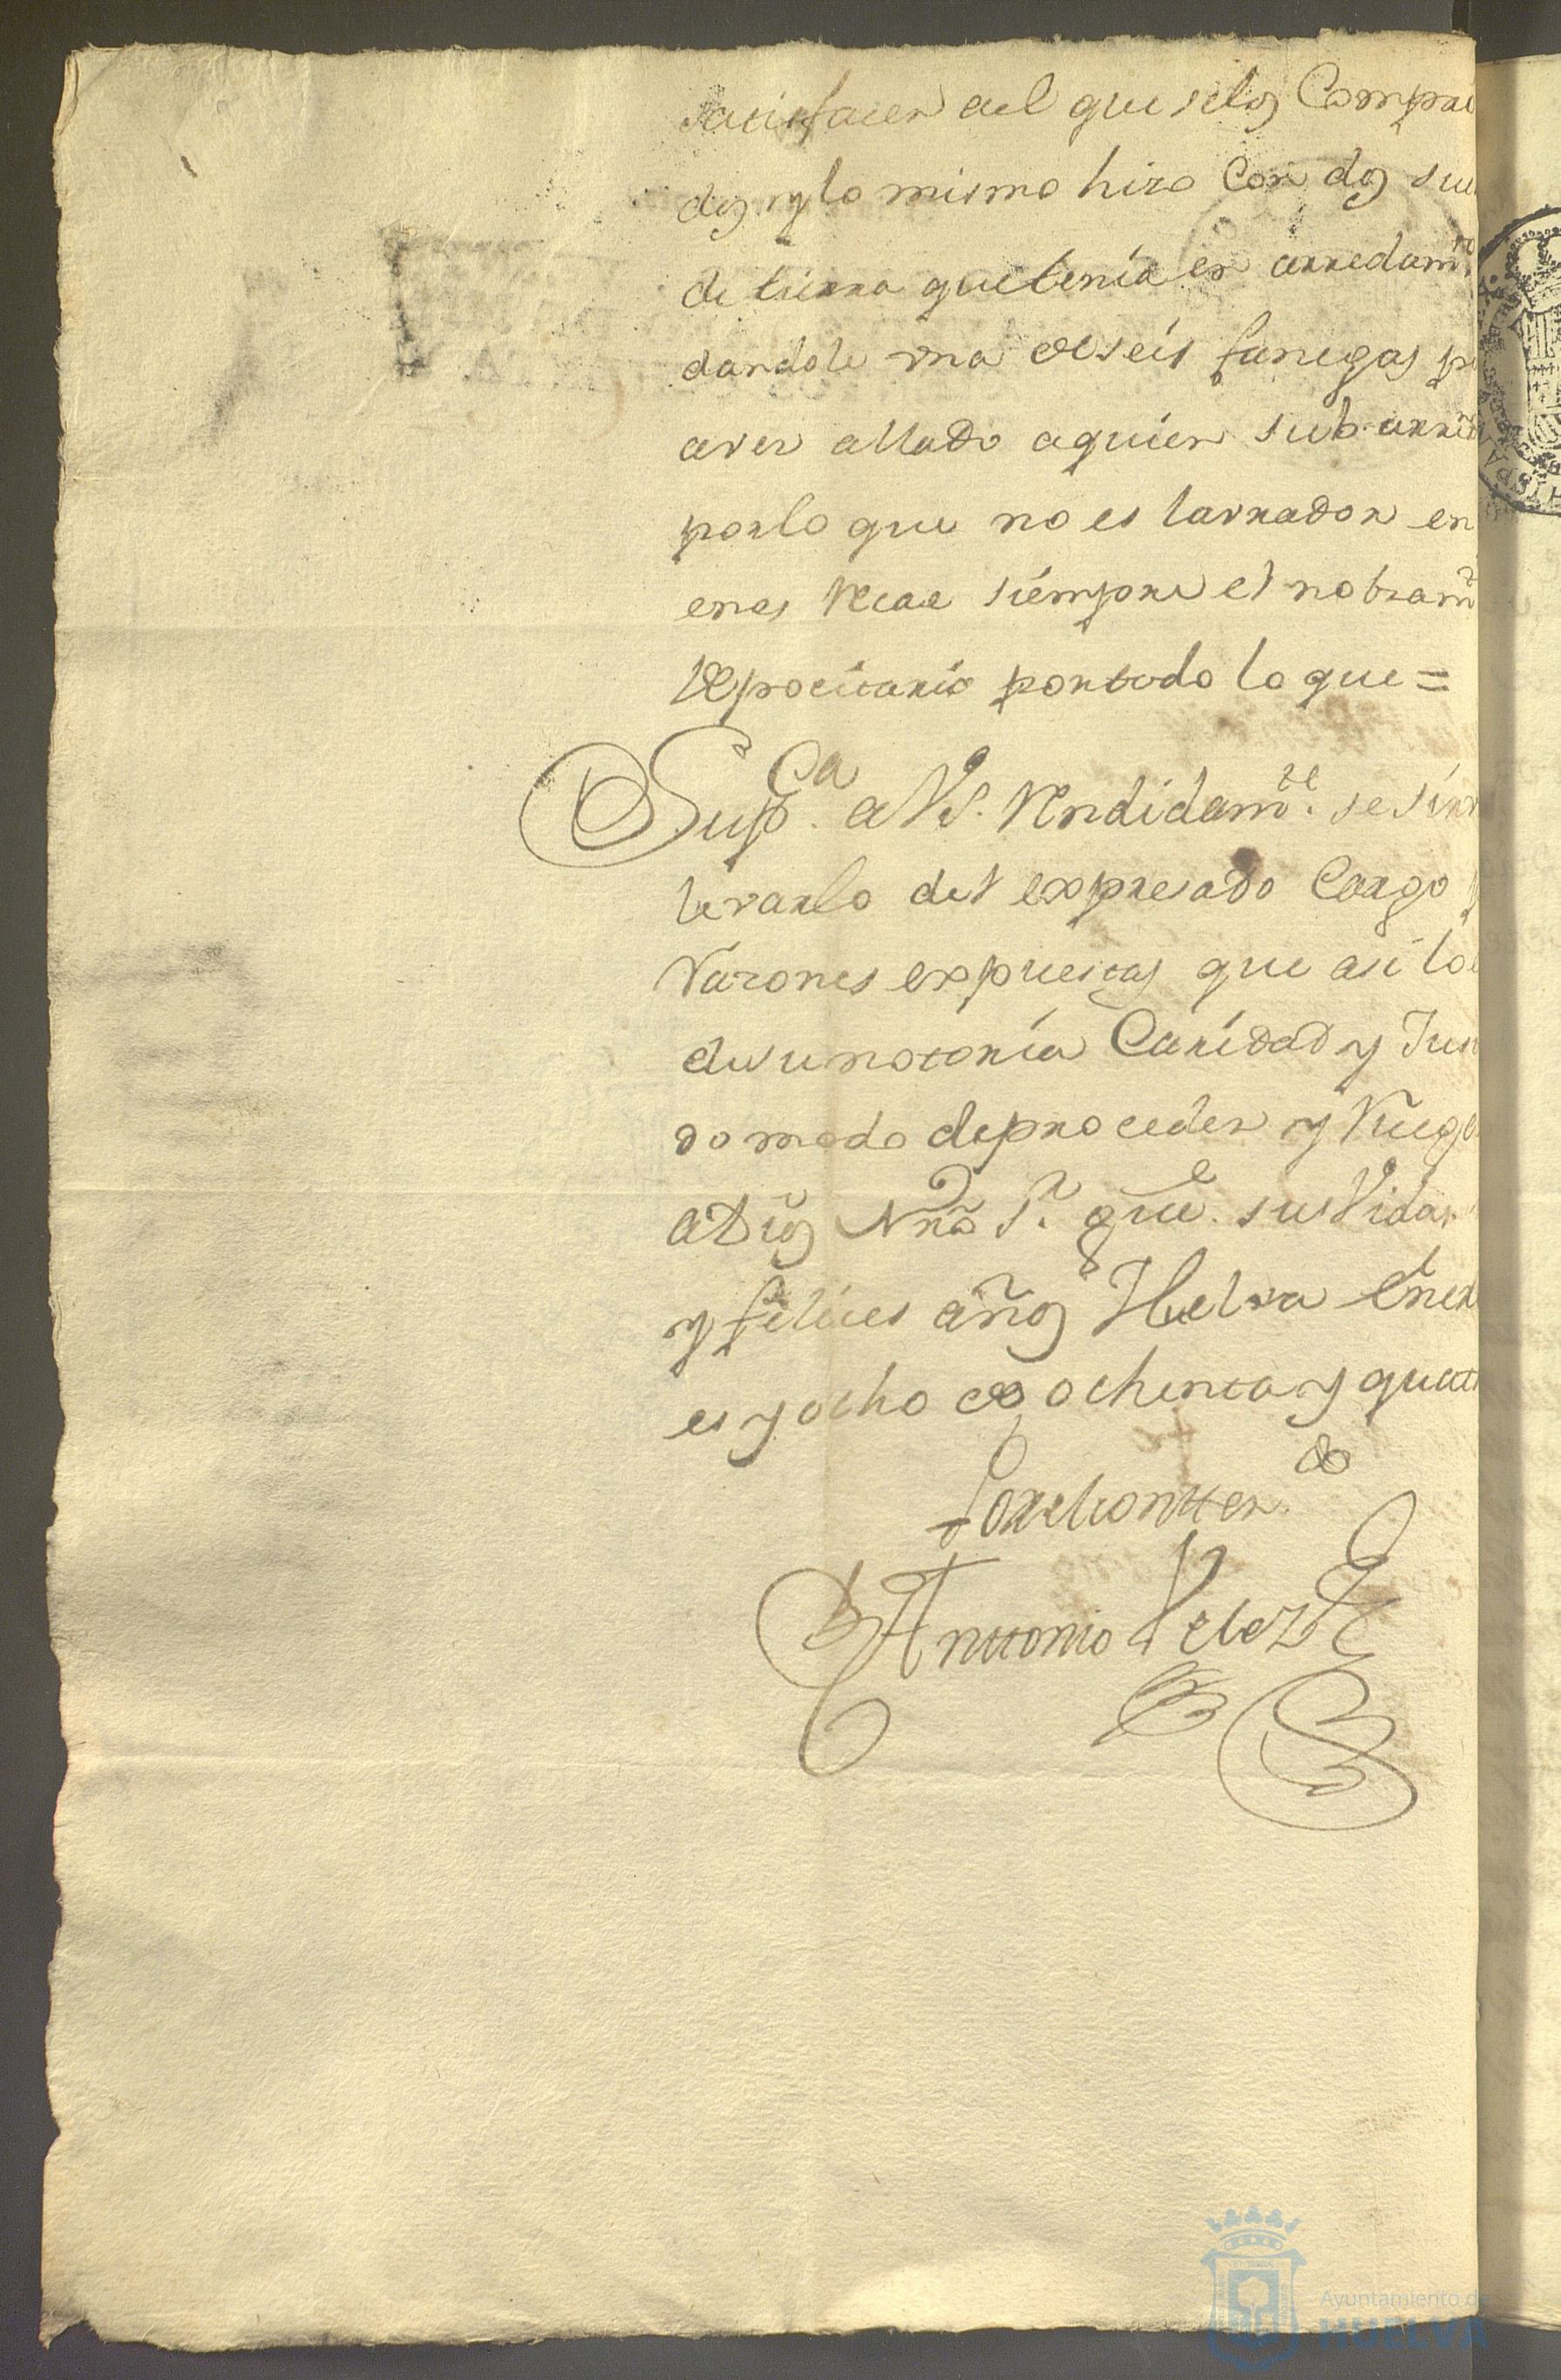 satisfacer al que selos Compra
dos y lo mismo hizo Con dos sue
de tierra que tenia en arredamto
dandole una de seis fanegas p
aver allado a quien subarr
por lo que no es lavrador en
enes recae siempre el nobramto
Depocitario por todo lo que =
Supca a VS. rendidamte. se sirv
levarlo del expresado Cargo p
razones expuestas que asi lo e
de su notoria Caridad y Jus
do modo de proceder y ruego
a Dios Nro Sr. gue. sus Vidas
y felices años Huelva Ener
es y ocho de ochenta y quat
Por el conttendo
Anttonio Velez
Ayuntamiento de
HUELVA